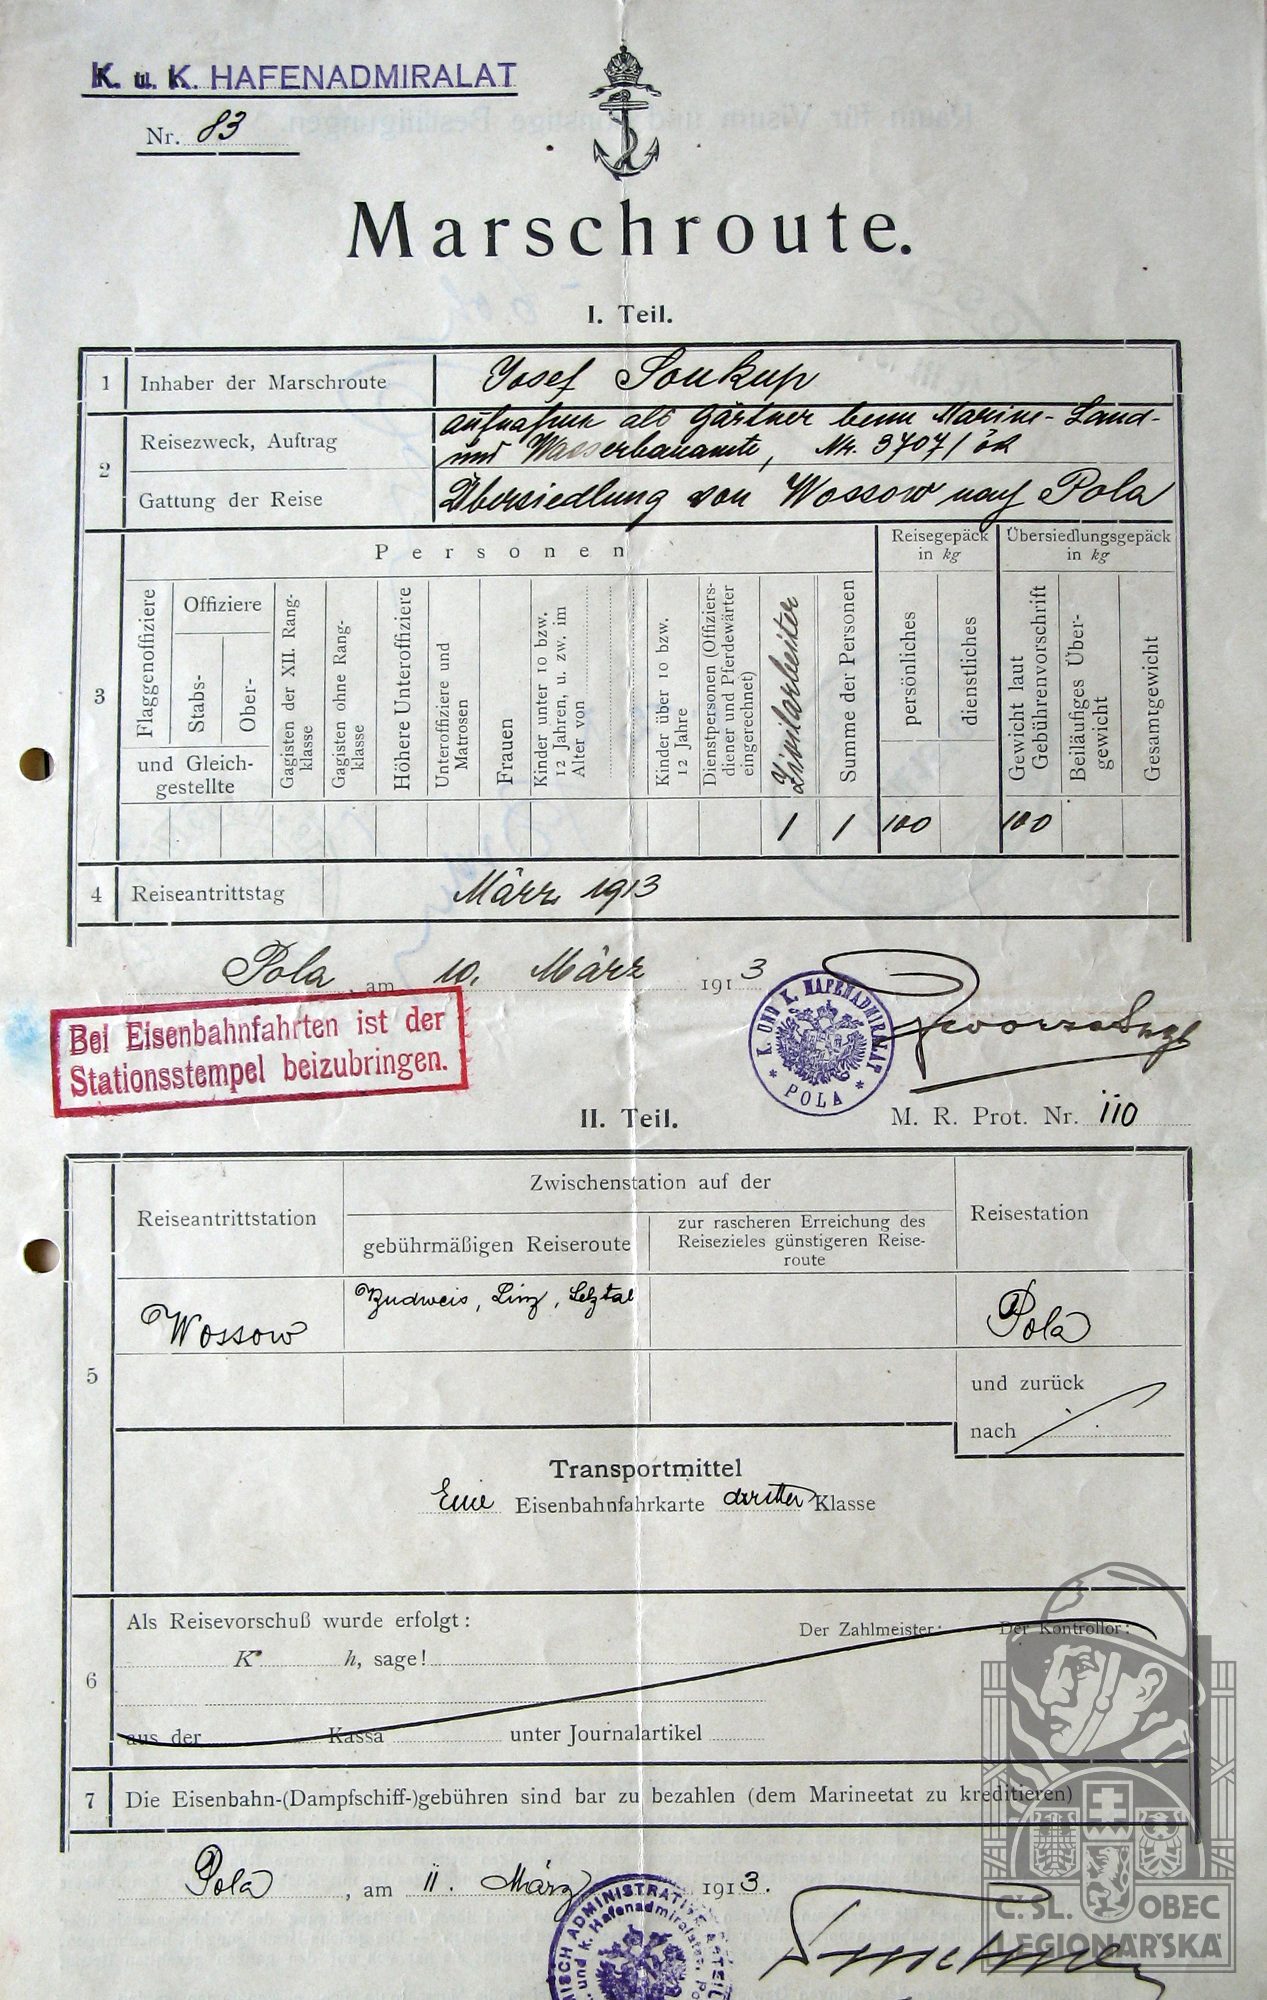 K. u. K. HAFENADMIRALAT
Nr. 83
Marschroute.
I. Teil.
1 Inhaber der Marschroute Josef Soukup
2 Reisezweck, Auftrag Aufnahme als Gärtner beim Marine-Land-
und Wasserbauamte, Nr. 3707/
Gattung der Reise Übersiedlung von Wossow nach Pola
3 Personen
Reisegepäck in kg
Übersiedlungsgepäck in kg
Flaggenoffiziere
Offiziere
Stabs-
Ober-
und Gleich-
gestellte
Gagisten der XII. Rang-
klasse
Gagisten ohne Rang-
klasse
Höhere Unteroffiziere
Unteroffiziere und
Matrosen
Frauen
Kinder unter 10 bzw.
12 Jahren, u. zw. im
Alter von
Kinder über 10 bzw.
12 Jahre
Dienstpersonen (Offiziers-
diener und Pferdewärter
eingerechnet)
Zivilarbeiter
Summe der Personen
persönliches
dienstliches
Gewicht laut
Gebührenvorschrift
Beiläufiges Über-
gewicht
Gesamtgewicht
1 1 100 100
4 Reiseantrittstag März 1913
Pola, am 10. März 1913
K. UND K. HAFENADMIRALAT * POLA *
Bei Eisenbahnfahrten ist der
Stationsstempel beizubringen.
II. Teil.
M. R. Prot. Nr. 110
5
Reiseantrittstation
Zwischenstation auf der
gebührmäßigen Reiseroute
zur rascheren Erreichung des
Reisezieles günstigeren Reise-
route
Reisestation
Wossow
Budweis, Linz, Selztal
Pola
und zurück
nach
Transportmittel
Eine Eisenbahnfahrkarte dritter Klasse
6 Als Reisevorschuß wurde erfolgt:
Der Zahlmeister: Der Kontrollor:
K h, sage!
aus der Kassa unter Journalartikel
7 Die Eisenbahn-(Dampfschiff-)gebühren sind bar zu bezahlen (dem Marineetat zu kreditieren)
Pola, am 11. März 1913.
ISCH ADMINISTRATIVE ABTEIL
und k. Hafenadmiralates, Po
Č. SL. OBEC
LEGIONÁŘSKÁ